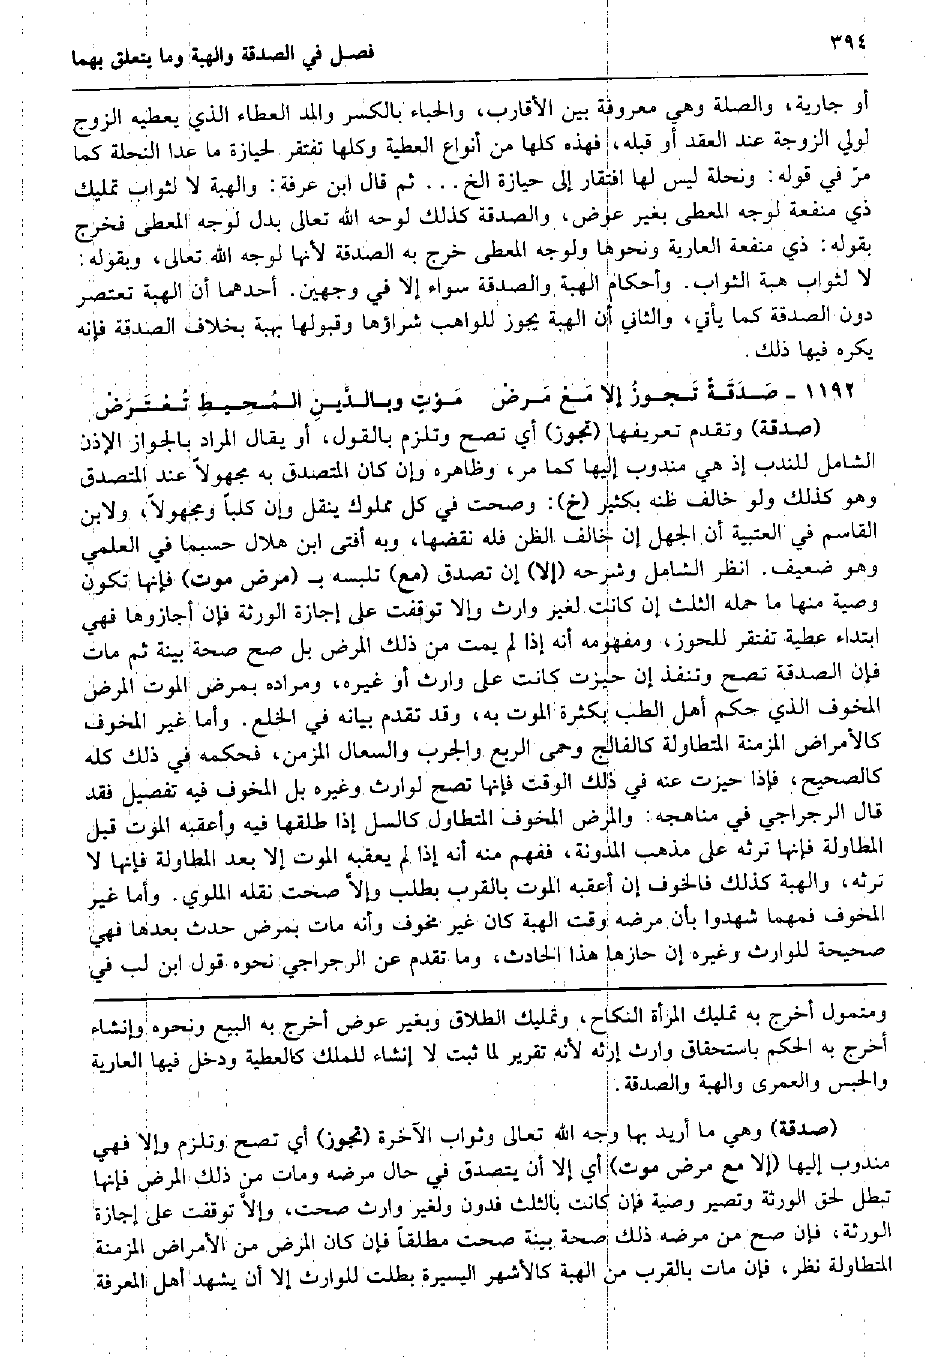 ٣٩٤
فصل في الصدقة والهبة وما يتعلق بهما
أو جارية، والصلة وهي معروفة بين الأقارب، والحباء بالكسر والمد العطاء الذي يعطيه الزوج
لولي الزوجة عند العقد أو قبله، فهذه كلها من أنواع العطية وكلها تفتقر لحيازة ما عدا النحلة كما
مرّ في قوله: ونحلة ليس لها افتقار إلى حيازة الخ... ثم قال ابن عرفة: والهبة لا لثواب تمليك
ذي منفعة لوجه المعطى بغير عوض، والصدقة كذلك لوجه الله تعالى بدل لوجه المعطى فخرج
بقوله: ذي منفعة العارية ونحوها ولوجه المعطى خرج به الصدقة لأنها لوجه الله تعالى، وبقوله:
لا لثواب هبة الثواب. وأحكام الهبة والصدقة سواء إلا في وجهين. أحدهما أن الهبة تعتصر
دون الصدقة كما يأتي، والثاني أن الهبة يجوز للواهب شراؤها وقبولها بهبة بخلاف الصدقة فإنه
يكره فيها ذلك.
١١٩٢ - صَدَقَةٌ تَجوزُ إلا مَعْ مَرضْ مَوْتٍ وبالدَّينِ المُحيطِ تُعْتَرَضْ
(صدقة) وتقدم تعريفها (تجوز) أي تصح وتلزم بالقول، أو يقال المراد بالجواز الإذن
الشامل للندب إذ هي مندوب إليها كما مر، وظاهره وإن كان المتصدق به مجهولاً عند المتصدق
وهو كذلك ولو خالف ظنه بكثير (خ): وصحت في كل مملوك ينقل وإن كلباً ومجهولاً، ولابن
القاسم في العتبية أن الجهل إن خالف الظن فله نقضها، وبه أفتى ابن هلال حسبما في العلمي
وهو ضعيف. انظر الشامل وشرحه (إلا) إن تصدق (مع) تلبسه بـ (مرض موت) فإنها تكون
وصية منها ما حمله الثلث إن كانت لغير وارث وإلا توقفت على إجازة الورثة فإن أجازوها فهي
ابتداء عطية تفتقر للحوز، ومفهومه أنه إذا لم يمت من ذلك المرض بل صح صحة بينة ثم مات
فإن الصدقة تصح وتنفذ إن حيزت كانت على وارث أو غيره، ومراده بمرض الموت المرض
المخوف الذي حكم أهل الطب بكثرة الموت به، وقد تقدم بيانه في الخلع. وأما غير المخوف
كالأمراض المزمنة المتطاولة كالفالج وحمى الربع والجرب والسعال المزمن، فحكمه في ذلك كله
كالصحيح، فإذا حيزت عنه في ذلك الوقت فإنها تصح لوارث وغيره بل المخوف فيه تفصيل فقد
قال الرجراجي في مناهجه: والمرض المخوف المتطاول كالسل إذا طلقها فيه وأعقبه الموت قبل
المطاولة فإنها ترثه على مذهب المدونة، ففهم منه أنه إذا لم يعقبه الموت إلا بعد المطاولة فإنها لا
ترثه، والهبة كذلك فالخوف إن أعقبه الموت بالقرب بطلب وإلاّ صحت نقله الملوي. وأما غير
المخوف فمهما شهدوا بأن مرضه وقت الهبة كان غير مخوف وأنه مات بمرض حدث بعدها فهي
صحيحة للوارث وغيره إن حازها هذا الحادث، وما تقدم عن الرجراجي نحوه قول ابن لب في
ومتمول أخرج به تمليك المرأة النكاح، وتمليك الطلاق وبغير عوض أخرج به البيع ونحوه وإنشاء
أخرج به الحكم باستحقاق وارث إرثه لأنه تقرير لما ثبت لا إنشاء للملك كالعطية ودخل فيها العارية
والحبس والعمرى والهبة والصدقة.
(صدقة) وهي ما أريد بها وجه الله تعالى وثواب الآخرة (تجوز) أي تصح وتلزم وإلا فهي
مندوب إليها (إلا مع مرض موت) أي إلا أن يتصدق في حال مرضه ومات من ذلك المرض فإنها
تبطل لحق الورثة وتصير وصية فإن كانت بالثلث فدون ولغير وارث صحت، وإلاّ توقفت على إجازة
الورثة، فإن صح من مرضه ذلك صحة بينة صحت مطلقاً فإن كان المرض من الأمراض المزمنة
المتطاولة نظر، فإن مات بالقرب من الهبة كالأشهر اليسيرة بطلت للوارث إلا أن يشهد أهل المعرفة